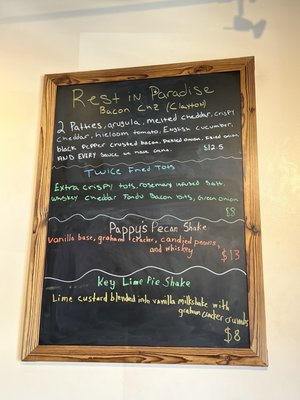 Rest in Paradise
Bacon Chz (Clayton)
2 Patties, arugula, melted cheddar, crispy
cheddar, heirloom tomato, English cucumber,
black pepper crusted bacon, Pickled onion, Fried onion
AND EVERY sauce we have came.
$12.5
Twice Fried Tots
Extra crispy tots, rosemary infused salt,
whiskey cheddar Fondu Bacon bits, Green onion
$8
Pappy's Pecan Shake
vanilla base, graham cracker, candied pecans,
and whiskey
$13
Key Lime Pie Shake
Lime custard blended into vanilla milkshake with
graham cracker crumbs
$8